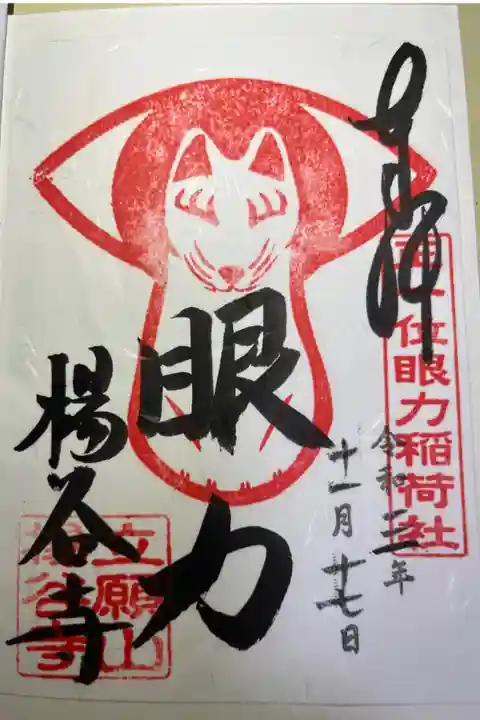 奉拝
正一位眼力稲荷社
令和三年
十一月廿七日
眼力
楊谷寺
立願山
楊谷寺